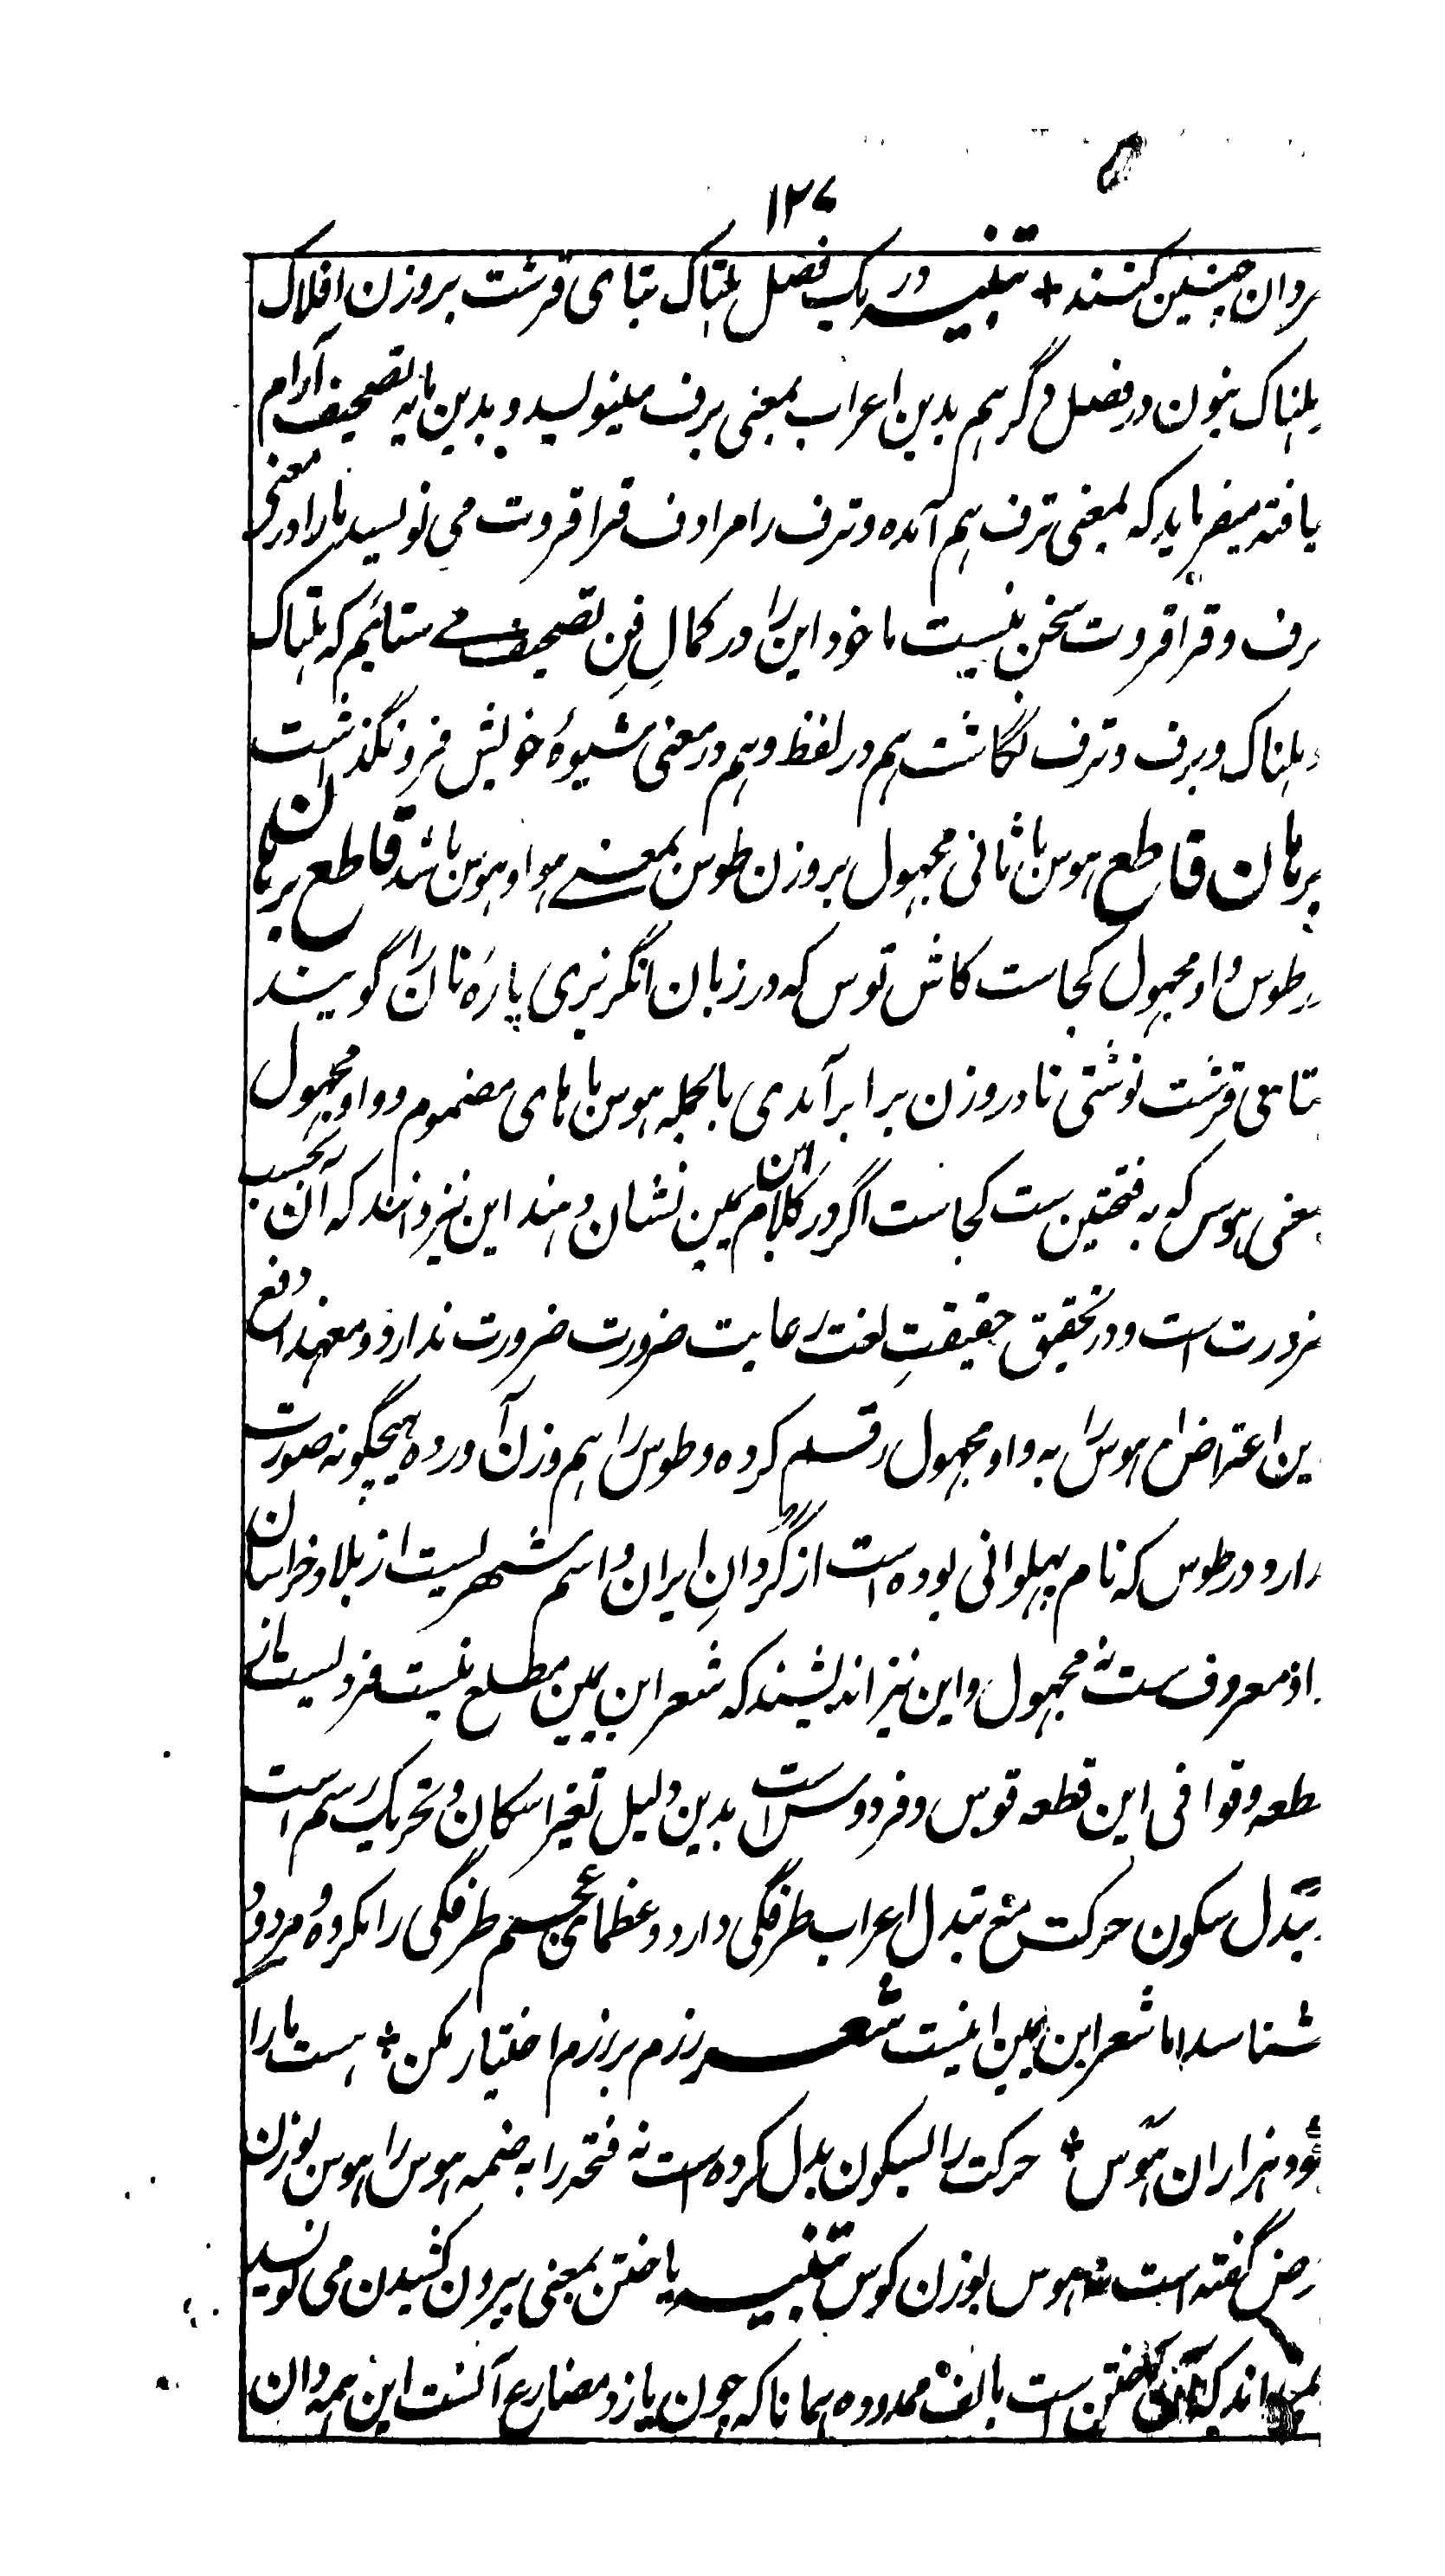 ۱۲۷
روان چنین کنند + تنبیه در یک فصل یلتاک بتای قرشت بروزن افلاک
یلناک بنون در فصل دگر هم بدین اعراب بمعنی برف مینویسد و بدین مایه تصحیف آرام
یافته میفرماید که بمعنی ترف هم آمده و ترف را مرادف قراقروت می نویسد ما را در معنی
برف و قراقروت سخن نیست ما خود این را در کمالِ فنِ تصحیف می ستائیم که یلتاک
و یلناک و برف و ترف نگاشت هم در لفظ و هم در معنی شیوهٔ خویش فرو نگذاشت
برهان قاطع هوس با ثانی مجهول بروزن طوس بمعنے هوا و هوس باشد قاطع برهان
در طوس واو مجهول کجاست کاش توس که در زبان انگریزی پارهٔ نان را گویند
بتای قرشت نوشتی تا در وزن برابر آمدی بالجمله هوس با های مضموم و واو مجهول
بمعنی هوس که به فتحتین ست کجاست اگر در کلام ابن یمین نشان دهند این نیز دانند که آن بحسب
ضرورت است و در تحقیق حقیقتِ لغت رعایت ضرورت ضرورت ندارد و معهذا دفع
این اعتراض هوس را به واو مجهول رقم کرده و طوس را هم وزن آورده هیچگونه صورت
ندارد و در طوس که نام پهلوانی بوده است از گردانِ ایران و اسم شهریست از بلاد خراسان
واو معروف ست نه مجهول و این نیز اندیشند که شعر ابن یمین مطلع نیست فردیست از
قطعه و قوافی این قطعه قوس و فردوس است بدین دلیل تغیر اسکان و تحریک رسم است
تبدل سکون حرکت مع تبدل اعراب طرفگی دارد و عظمای عجم طرفگی را مکروه و مردود
شناسد اما شعر ابن یمین اینست شعر رزم بر بزم اختیار مکن + هست ما را
بخود هزاران هَوْس + حرکت را بسکون بدل کرده است نه فتحه را به ضمه هوس را هوس بوزن
گفته است نه هوس بوزن کوس تنبیه یاختن بمعنی بیرون کشیدن می نویسد
ست بالف ممدوده همانا که چون یازد مضارع آنست این همه دان